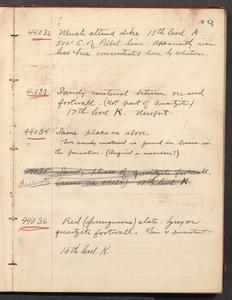 19
44032 Much altered dike 15th level A
500' E. of Pabst line. Apparently iron
has been concentrated here by solution.
44033 Sandy material between ore and
footwall. (Not part of quartzite)
17th level K. Newport.
44034 Same place as above.
This sandy material is found in lenses in
the formation. (Original or secondary?)
44035 Sandy phase of quartzite footwall.
Duplicate (same as 44034) 17th level K.
44036 Red (ferruginous) slate. Lying on
quartzite footwall. Thin &
16th level K.